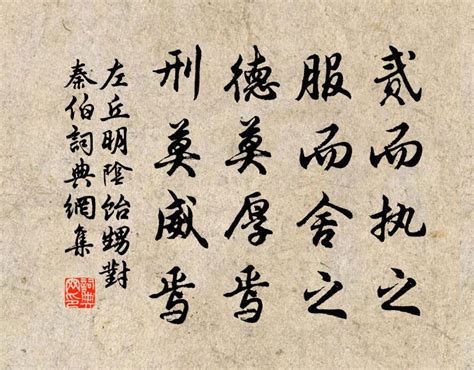 貳而执之
服而舍之
德莫厚焉
刑莫威焉
左丘明陰飴甥對
秦伯詞典網集